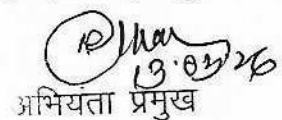 13.03/26
अभियंता प्रमुख